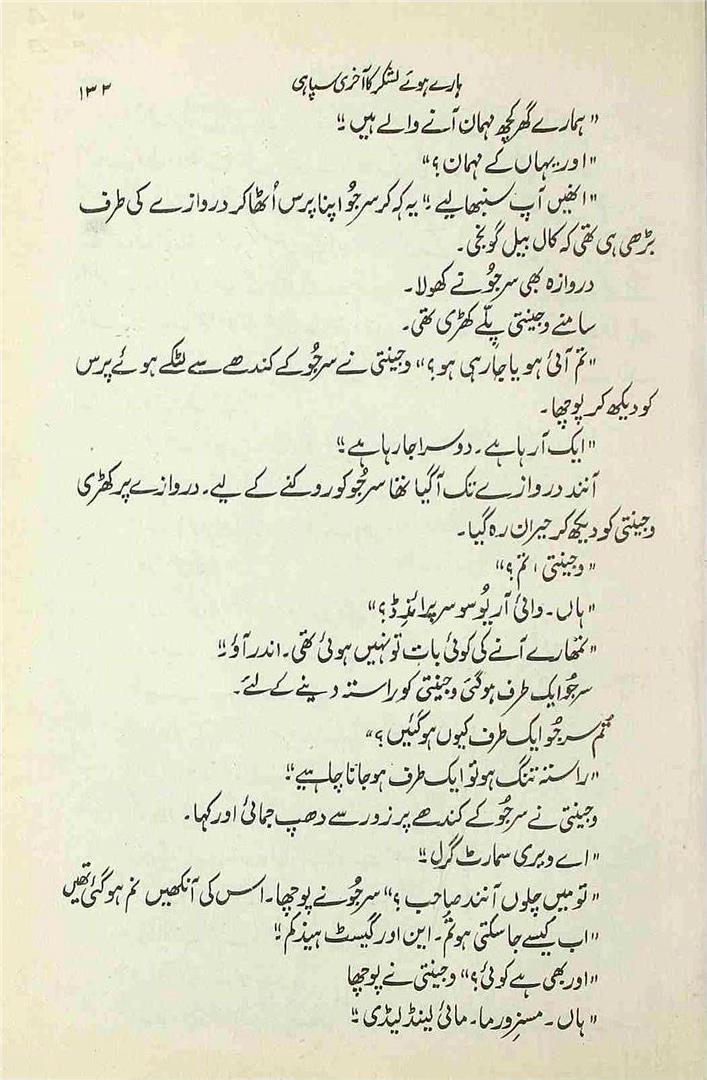 ہارے ہوئے لشکر کا آخری سپاہی
۱۳۲
"ہمارے گھر کچھ مہمان آنے والے ہیں۔"
"اور یہاں کے مہمان؟"
"انھیں آپ سنبھالیے۔" یہ کہہ کر سرجُو اپنا پرس اُٹھا کر دروازے کی طرف
بڑھی ہی تھی کہ کال بیل گونجی۔
دروازہ بھی سرجُو نے کھولا۔
سامنے وجینتی پِلّے کھڑی تھی۔
"تم آئی ہو یا جا رہی ہو؟" وجینتی نے سرجُو کے کندھے سے لٹکے ہوئے پرس
کو دیکھ کر پوچھا۔
"ایک آ رہا ہے۔ دوسرا جا رہا ہے۔"
آنند دروازے تک آگیا تھا سرجُو کو روکنے کے لیے۔ دروازے پر کھڑی
وجینتی کو دیکھ کر حیران رہ گیا۔
"وجینتی، تم؟"
"ہاں۔ وائی آر یُو سو سرپرائزڈ؟"
"تمھارے آنے کی کوئی بات تو نہیں ہوئی تھی۔ اندر آؤ۔"
سرجُو ایک طرف ہوگئی وجینتی کو راستہ دینے کے لئے۔
"تم سرجُو ایک طرف کیوں ہوگئیں؟"
"راستہ تنگ ہو تو ایک طرف ہو جانا چاہیے۔"
وجینتی نے سرجُو کے کندھے پر زور سے دھپ جمائی اور کہا۔
"اے ویری سمارٹ گرل۔"
"تو میں چلوں آنند صاحب؟" سرجُو نے پوچھا۔ اس کی آنکھیں نم ہوگئی تھیں
"اب کیسے جاسکتی ہو تُم۔ این اور گیسٹ ہیز کم۔"
"اور بھی ہے کوئی؟" وجینتی نے پوچھا
"ہاں۔ مسز ورما۔ مائی لینڈ لیڈی۔"